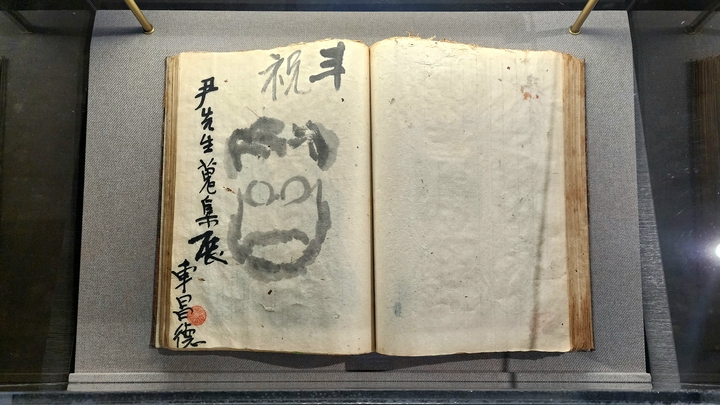 祝
尹先生蒐集展
車昌德